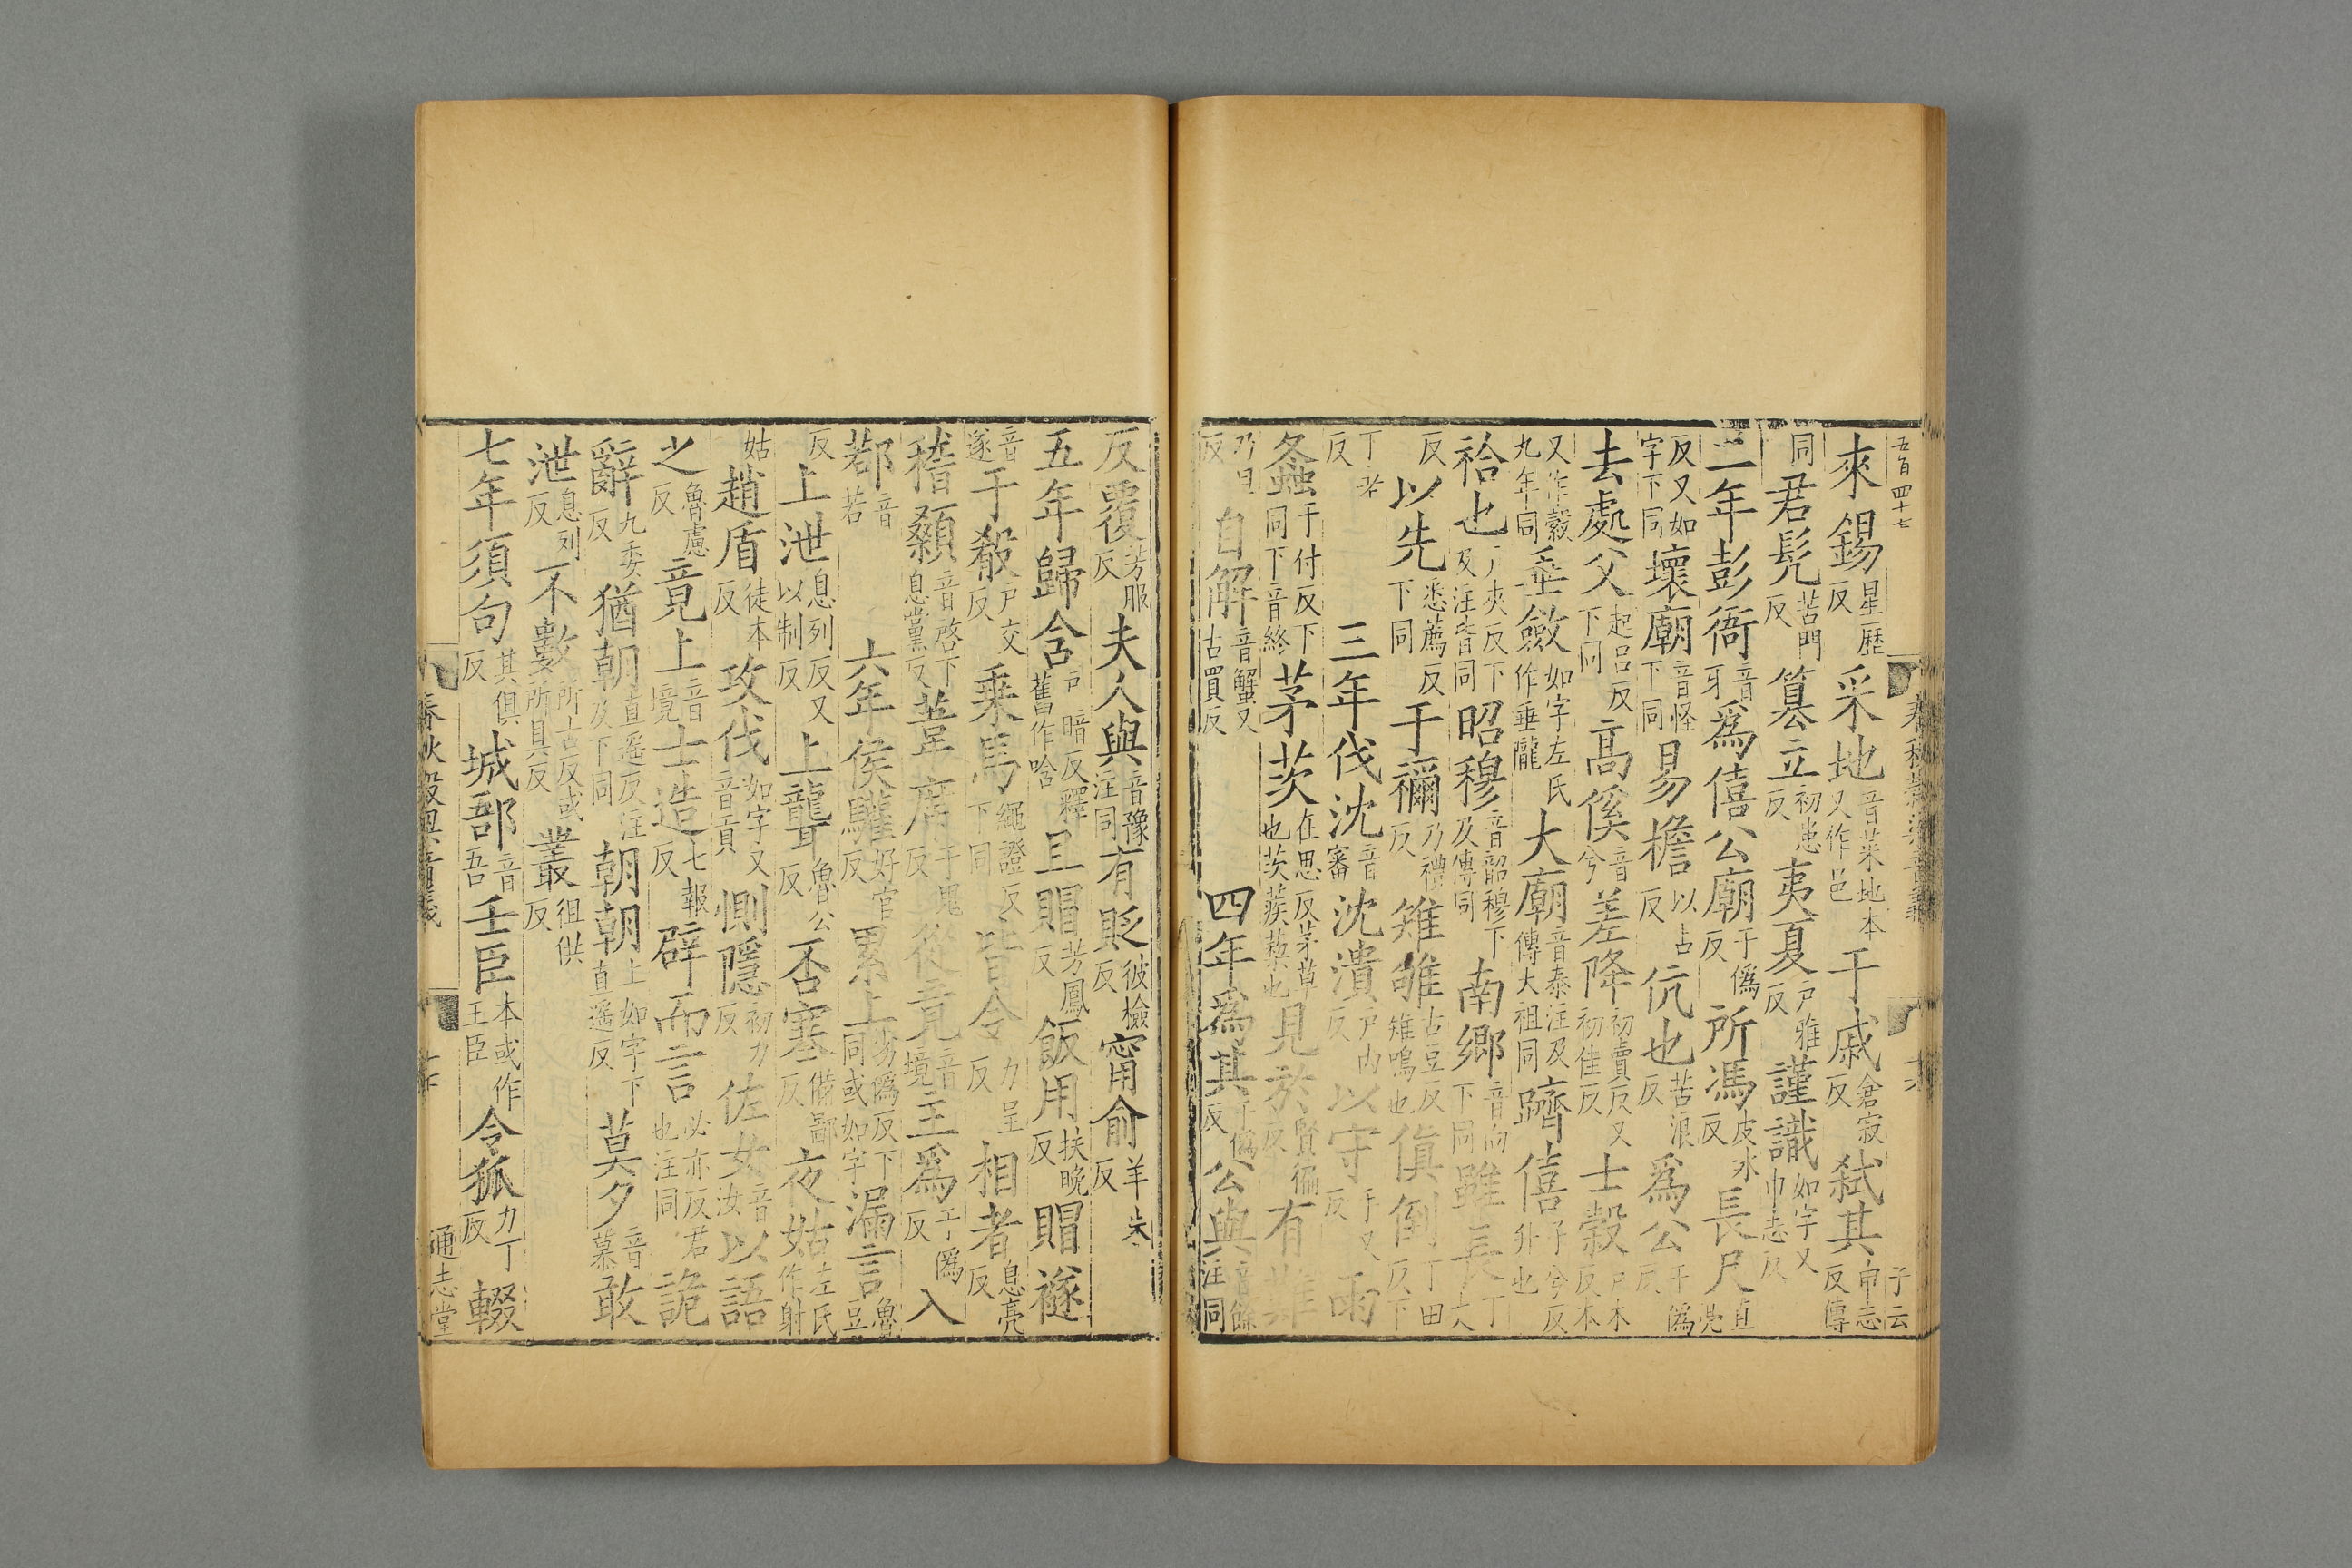 五百四十七 春秋穀梁音義 子云
來錫星歷反采地音菜地本又作邑于戚倉寂反弑其申志反傳
同君髡苦門反篡立初患反夷夏戶雅反謹識如字又巾志反
二年彭衙音牙爲僖公廟于僞反所馮皮冰反長尺直亮
反又如字下同壞廟音怪下同易檐以占反伉也苦浪反爲公于僞反
去處父起呂反下同高傒音兮差降初賣反又初佳反士縠戶木反本
又作穀九年同垂斂如字左氏作垂隴大廟音泰注及傳大祖同躋僖子兮反升也
祫也戶夾反下及注皆同昭穆音韶穆下及傳同南鄉音向下同雖長丁丈
反以先悉薦反下同于禰乃禮反雉雊古豆反雉鳴也傎倒丁田反下
丁老反三年伐沈音審沈潰戶內反以守手又反雨
螽于付反下同下音終茅茨在思反茅草也茨蒺蔾也見於賢徧反有難
乃旦反自解音蟹又古買反四年爲其于僞反公與音餘注同
反覆芳服反夫人與音豫注同有貶彼檢反甯俞羊朱反
五年歸含戶暗反釋舊作唅且賵芳鳳反飯用扶晚反賵襚
音遂于殽戶交反乘馬繩證反下同皆令力呈反相者息亮反
稽顙音啓下息黨反葦席于鬼反從竟音境主爲于僞反入
鄀音若六年侯驩好官反累上劣僞反下同或如字漏言魯豆
反上泄息列反又以制反上聾魯公反否塞備鄙反夜姑左氏作射
姑趙盾徒本反攻伐如字又音貢惻隱初力反佐女音汝以語
之魯慮反竟上音境士造七報反辟而言必亦反君也注同詭
辭九委反猶朝直遥反注及下同朝朝上如字下直遥反莫夕音慕敢
泄息列反不數所主反或所具反叢徂供反
七年須句其俱反城郚音吾壬臣本或作王臣令狐力丁反輟
春秋穀梁音義 通志堂